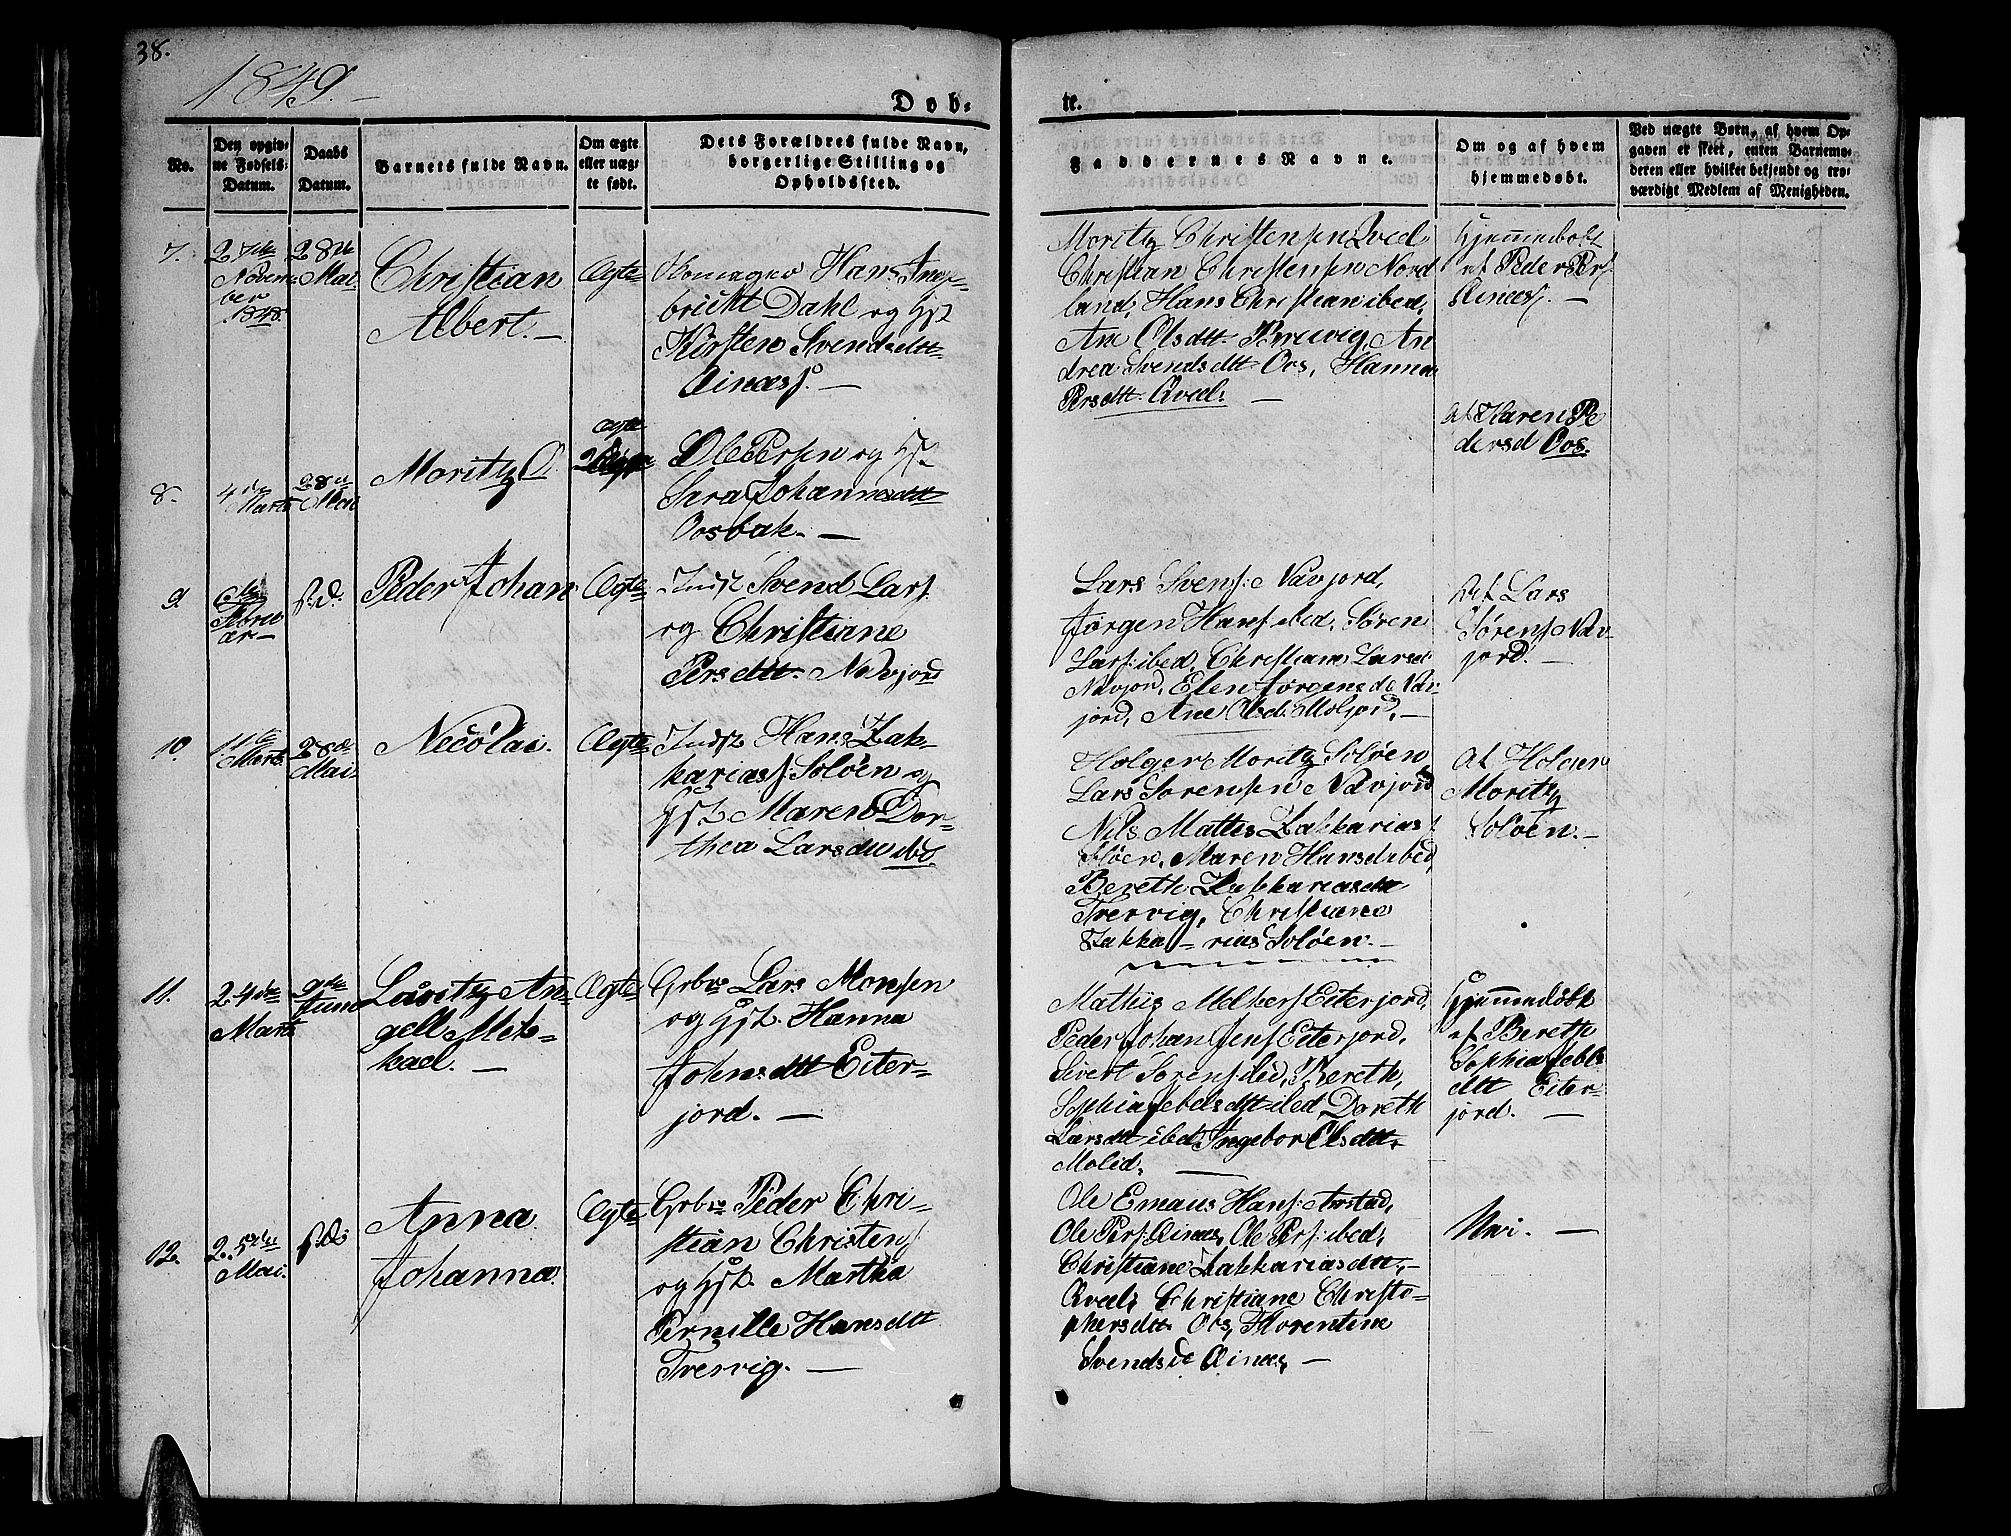 38.
1849.
Døb-
te.
No.
Den opgiv-
ne Fødsels-
Datum.
Daabs
Datum.
Barnets fulde Navn.
Om ægte
eller uæg-
te født.
Dets Forældres fulde Navn,
borgerlige Stilling og
Opholdssted.
Faddernes Navne.
Om og af hvem
hjemmedøbt.
Ved uægte Børn, af hvem Op-
gaven er skeet, enten Barnemo-
deren eller hvilket bekjendt og tro-
værdigt Medlem af Menigheden.
7.
27de
Novem-
ber
1848.
28de
Mai
Christian
Albert.
Ægte
Hans Inge-
brickt Dahl og Hst
Kirsten Svendsdtt
Ainæss.
Moritz Christensen Qved
Christian Christensen Nord
land, Hans Christian ibed,
Ane Olsdtt Brevig, An
drea Svendsdtt Oos, Hanna
Persdtt Qved.
Hjemmedøbt
af Peder Pers.
Ainæss.
8.
4de
Marts
28de
Mai
Moritz O.
Ægte
Ole Persen og Hst
Sara Johannesdtt
Oosbak.
af Karen Pe
dersd Oos.
9.
Febru
ar
s.d.
Peder Johan
Ægte
Indst Svend Lars.
og Christiane
Persdtt Nævjord
Lars Svens. Nævjord,
Jørgen Hans. ibed, Søren
Lars. ibed, Christiane Larsd
Nævjord, Elen Jørgensd Næv
jord, Ane Olsd.
Af Lars
Sørens. Næv-
jord.
10.
11de
Marts
28de
Mai
Necolai.
Ægte
Indst Hans Zak-
karias. Soløen og
Hst Maren Dor-
thea Larsd ibd.
Holger Moritz Soløen
Lars Sørensen Nævjord
Nils Mattis Zakkarias.
Soløen, Maren Hansd ibed,
Bereth Zakkariasdtt
Trervig, Christiane
Zakka-rias Soløen.
Af Holger
Moritz
Soløen.
11.
24de
Marts
9de
Juni
Lauritz An-
gell Mik-
kael.
Ægte
Grbr. Lars Monsen
og Hst. Hanna
Johnsdtt Eiter-
jord.
Mathis Melkers. Eiterjord,
Peder Johan Jens. Eiterjord,
Sivert Sørens. ibed, Bereth
Sophia dtt ibed, Doreth
Larsdtt ibed, Ingebor Olsdtt
Molid.
Hjemmedøbt
af Bereth
Sophia
dtt Eiter-
jord.
12.
25de
Mai.
s.d.
Anna
Johanna
Ægte
Grbr. Peder Chri-
stian Christens.
og Hst. Martha
Pernille Hansdtt
Trervig.
Ole Emaus Hans. Arstad,
Ole Pers. Ainæs, Ole Pers. ibed,
Christiane Zakkariasdtt,
Qved, Christiane Christo-
phersdtt Oos, Florentine
Svendsd Ainæs,
Nei.